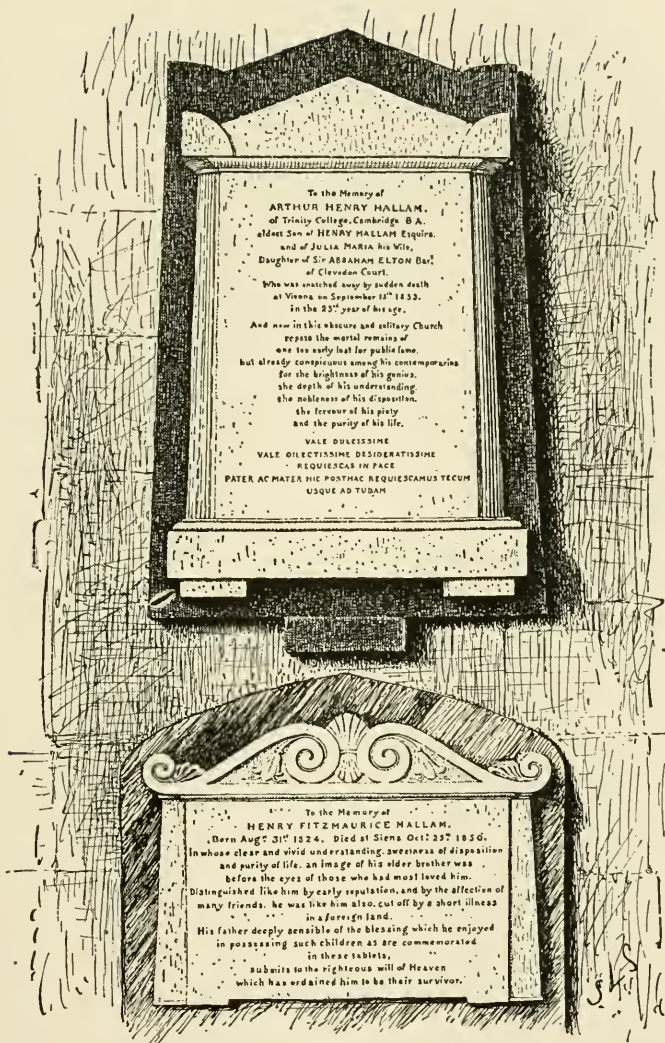 To the Memory of
ARTHUR HENRY HALLAM,
of Trinity College, Cambridge B A.
eldest Son of HENRY HALLAM Esquire.
and of JULIA MARIA his Wife,
Daughter of Sir ABRAHAM ELTON Bart.
of Clevedon Court.
Who was snatched away by sudden death
at Vienna on September 15th 1833.
in the 23rd year of his age.
And now in this obscure and solitary Church
repose the mortal remains of
one too early lost for public fame.
but already conspicuous among his contemporaries
for the brightness of his genius.
the depth of his understanding.
the nobleness of his disposition.
the fervour of his piety
and the purity of his life.
VALE DULCISSIME
VALE DILECTISSIME DESIDERATISSIME
REQUIESCAS IN PACE
PATER AC MATER HIC POSTHAC REQUIESCAMUS TECUM
USQUE AD TUBAM
To the Memory of
HENRY FITZMAURICE HALLAM.
Born Augt 31st 1824. Died at Siena Octr 25th 1850.
In whose clear and vivid understanding. sweetness of disposition
and purity of life. an image of his older brother was
before the eyes of those who had most loved him.
Distinguished like him by early reputation, and by the affection of
many friends. he was like him also. cut off by a short illness
in a foreign land.
His father deeply sensible of the blessing which he enjoyed
in possessing such children as are commemorated
in these tablets,
submits to the righteous will of Heaven
which has ordained him to be their survivor.